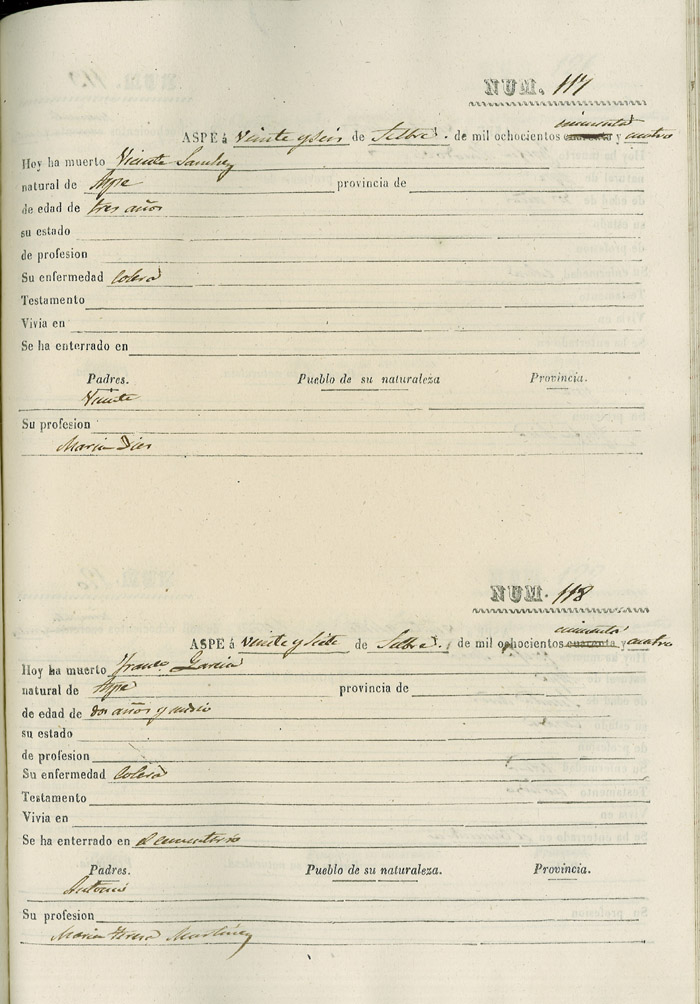 NUM. 117
cincuenta
ASPE á Veinte y seis de Setbre. de mil ochocientos cuarenta y cuatro
Hoy ha muerto Vicente Sanchez
natural de Aspe provincia de
de edad de tres años
su estado
de profesion
Su enfermedad Colera
Testamento
Vivia en
Se ha enterrado en
Padres. Pueblo de su naturaleza Provincia.
Vicente
Su profesion
Maria Dies
NUM. 118
cincuenta
ASPE á Veinte y siete de Setbre. de mil ochocientos cuarenta y cuatro
Hoy ha muerto Franco. Garcia
natural de Aspe provincia de
de edad de dos años y medio
su estado
de profesion
Su enfermedad Colera
Testamento
Vivia en
Se ha enterrado en el cementerio
Padres. Pueblo de su naturaleza. Provincia.
Antonio
Su profesion
Maria Teresa Martinez